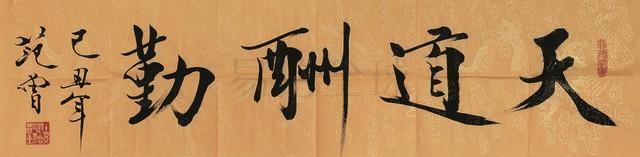 天道酬勤
己丑年
范曾